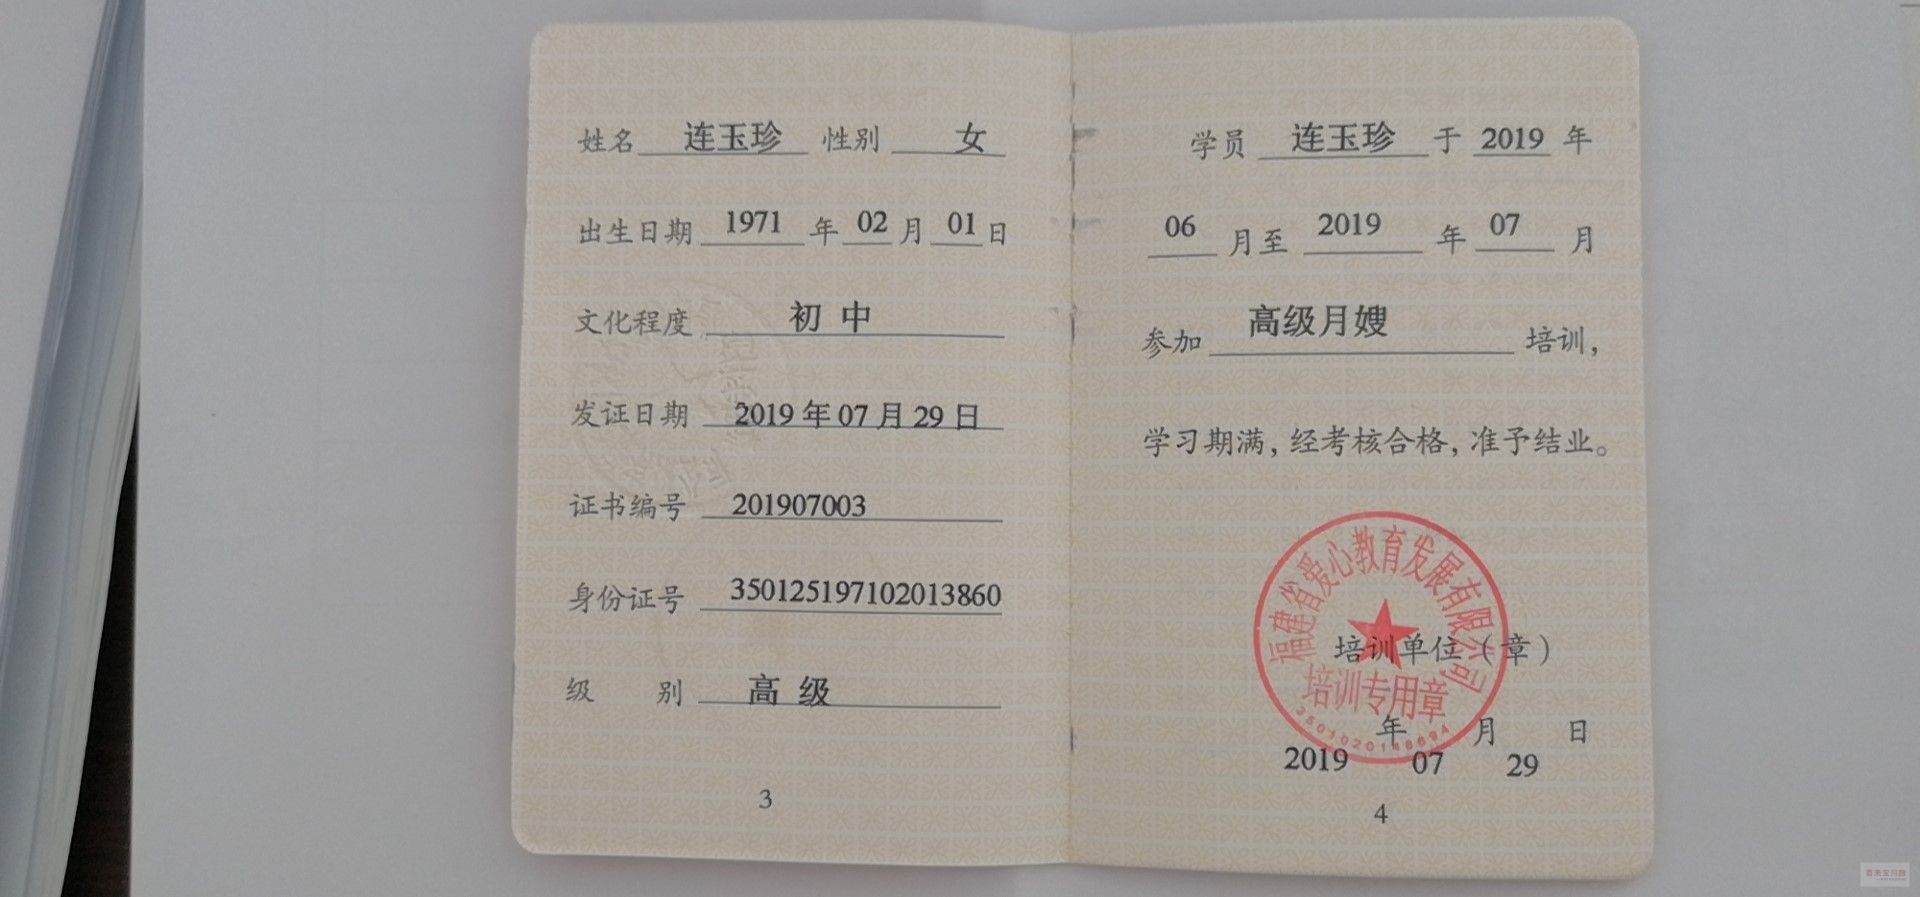 姓名 连玉珍 性别 女
出生日期 1971 年 02 月 01 日
文化程度 初 中
发证日期 2019 年 07 月 29 日
证书编号 201907003
身份证号 350125197102013860
级 别 高 级
3
学员 连玉珍 于 2019 年
06 月至 2019 年 07 月
参加 高级月嫂 培训，
学习期满，经考核合格，准予结业。
福建省爱心教育发展有限公司
培训单位（章）
培训专用章
3501020148694
年 月 日
2019 07 29
4